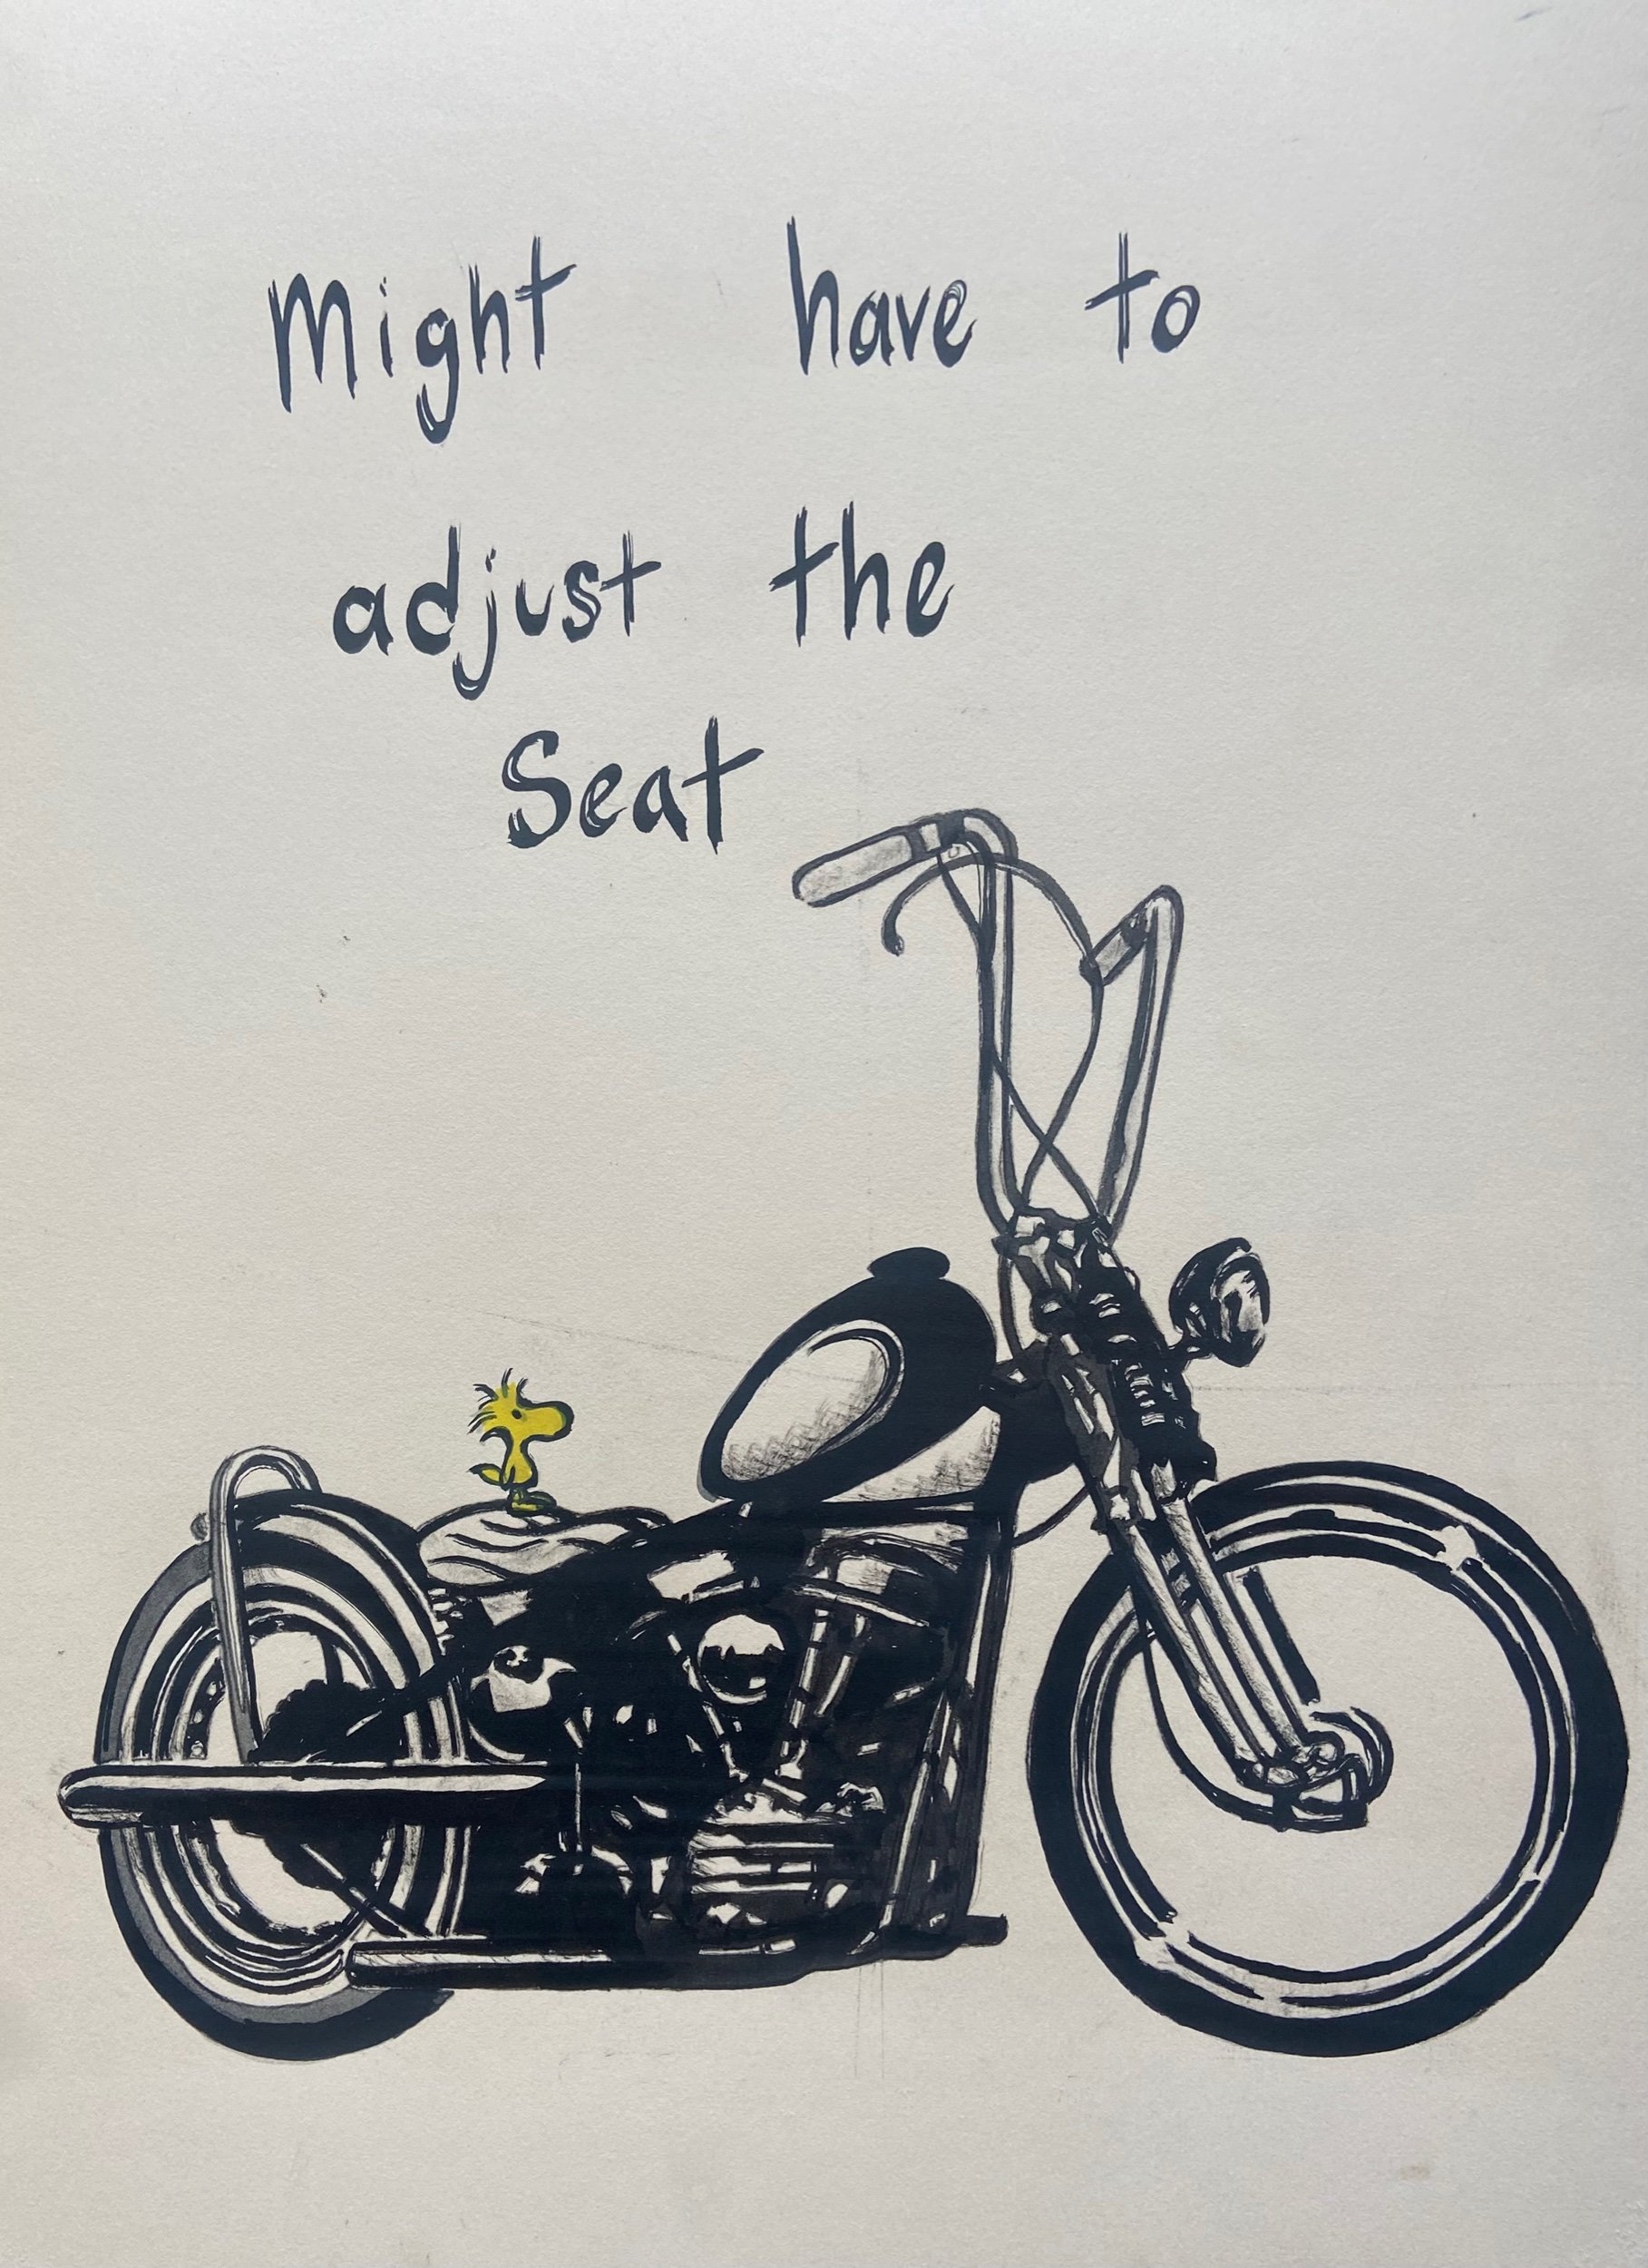 Might have to
adjust the
Seat